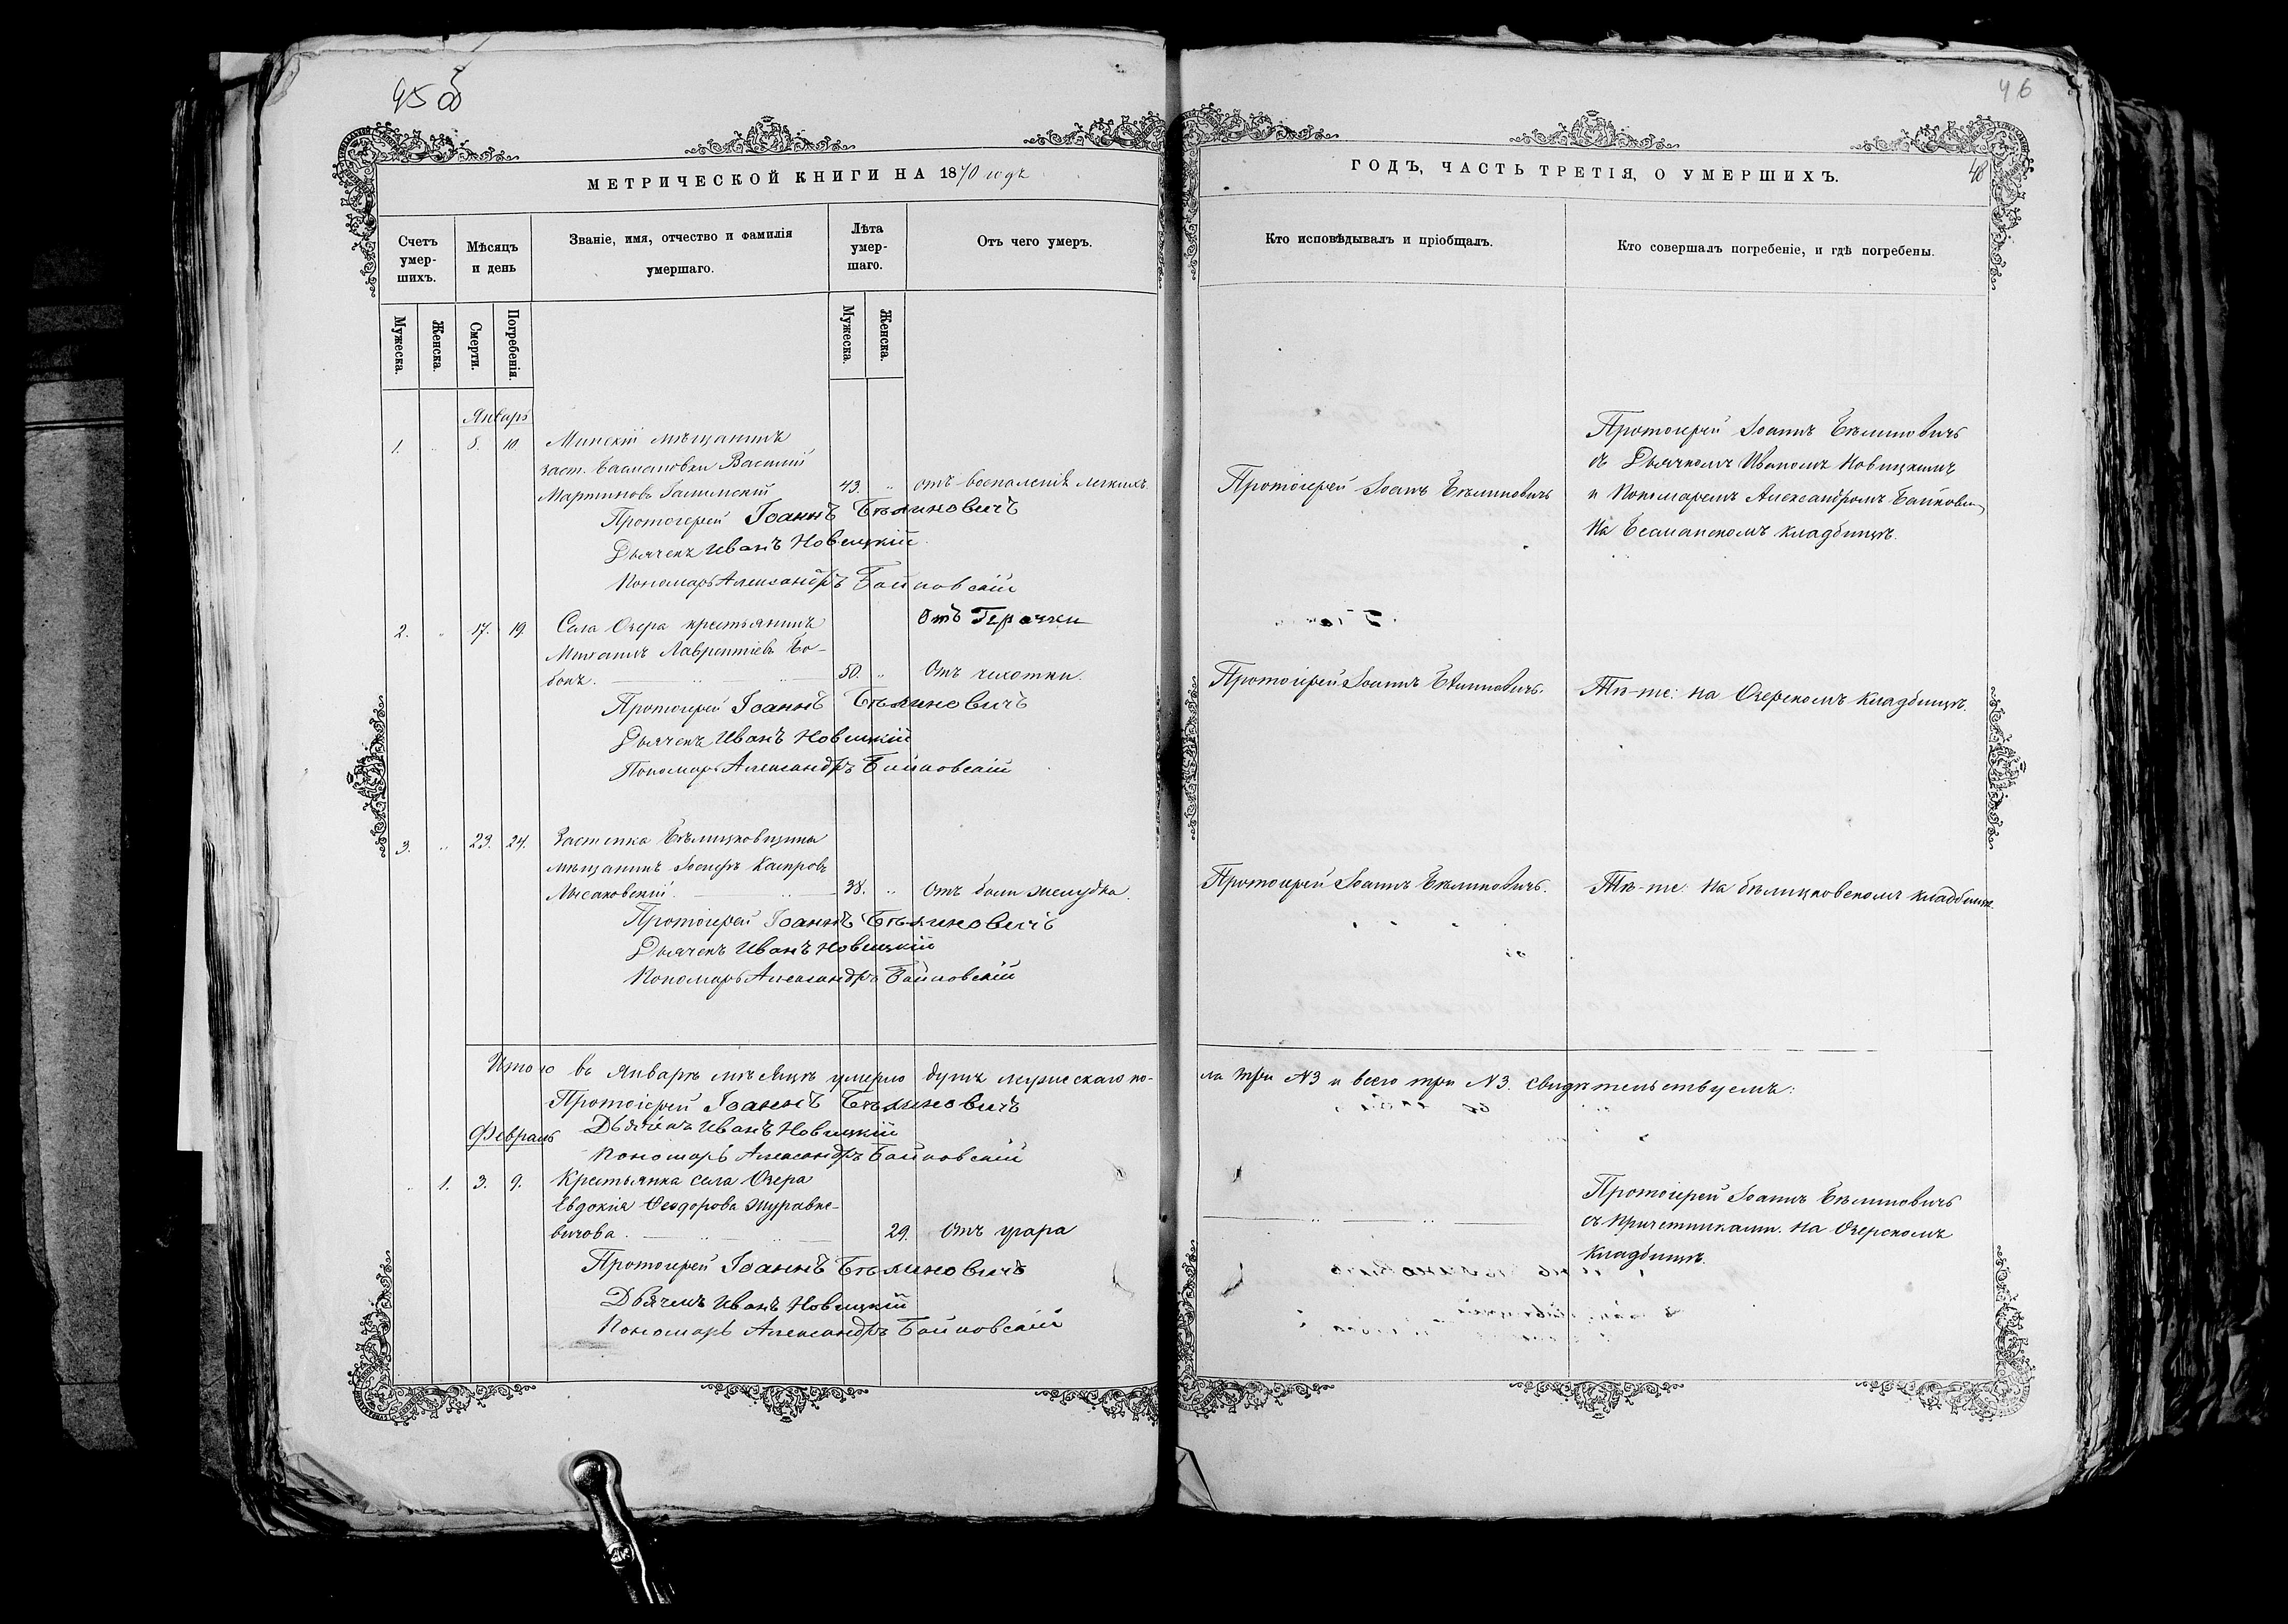 45 об
МЕТРИЧЕСКОЙ КНИГИ НА 1870 годъ
Счетъ умершихъ.
Мѣсяцъ и день
Званіе, имя, отчество и фамилія умершаго.
Лѣта умершаго.
Отъ чего умеръ.
Мужеска.
Женска.
Смерти.
Погребенія.
Мужеска.
Женска.
Январь
1. „ 8. 10. Минскій мѣщанинъ
заст. Василій
Мартиновъ 43. „ отъ воспаленія легкихъ.
Протоіерей Іоаннъ Бѣлиновичъ
Дьячекъ Иванъ Новицкій
Пономарь Александръ Байковскій
Отъ Горячки
2. „ 17. 19. Села Озера крестьянинъ
Михаилъ Лаврентіевъ Бо-
бокъ. 50. „ Отъ чахотки.
Протоіерей Іоаннъ Бѣлиновичъ
Дьячекъ Иванъ Новицкій
Пономарь Александръ Байковскій
3. „ 23. 24. Застѣнка
мѣщанинъ Іосифъ
Лысаковскій. 38. „ Отъ боли желудка.
Протоіерей Іоаннъ Бѣлиновичъ
Дьячекъ Иванъ Новицкій
Пономарь Александръ Байковскій
Итого въ Январѣ мѣсяцѣ умерло душъ мужескаго по-
Протоіерей Іоаннъ Бѣлиновичъ
Февраль Дьячекъ Иванъ Новицкій
Пономарь Александръ Байковскій
„ 1. 3. 9. Крестьянка села Озера
Евдокія Ѳеодорова Журавке-
вичова. 29. Отъ угара
Протоіерей Іоаннъ Бѣлиновичъ
Дьячекъ Иванъ Новицкій
Пономарь Александръ Байковскій
46
ГОДЪ, ЧАСТЬ ТРЕТІЯ, О УМЕРШИХЪ.
48
Кто исповѣдывалъ и пріобщалъ.
Кто совершалъ погребеніе, и гдѣ погребены.
Протоіерей Іоаннъ Бѣлиновичъ
Протоіерей Іоаннъ Бѣлиновичъ
съ Дьячкомъ Иваномъ Новицкимъ
и Пономаремъ Александромъ
На кладбищѣ.
Протоіерей Іоаннъ Бѣлиновичъ.
Тѣ-же: на Озерскомъ кладбищѣ.
Протоіерей Іоаннъ Бѣлиновичъ.
Тѣ-же: На кладбищѣ.
ла три №3 и всего три №3. свидѣтельствуемъ:
Протоіерей Іоаннъ Бѣлиновичъ
съ причетниками. На Озерскомъ
кладбищѣ.